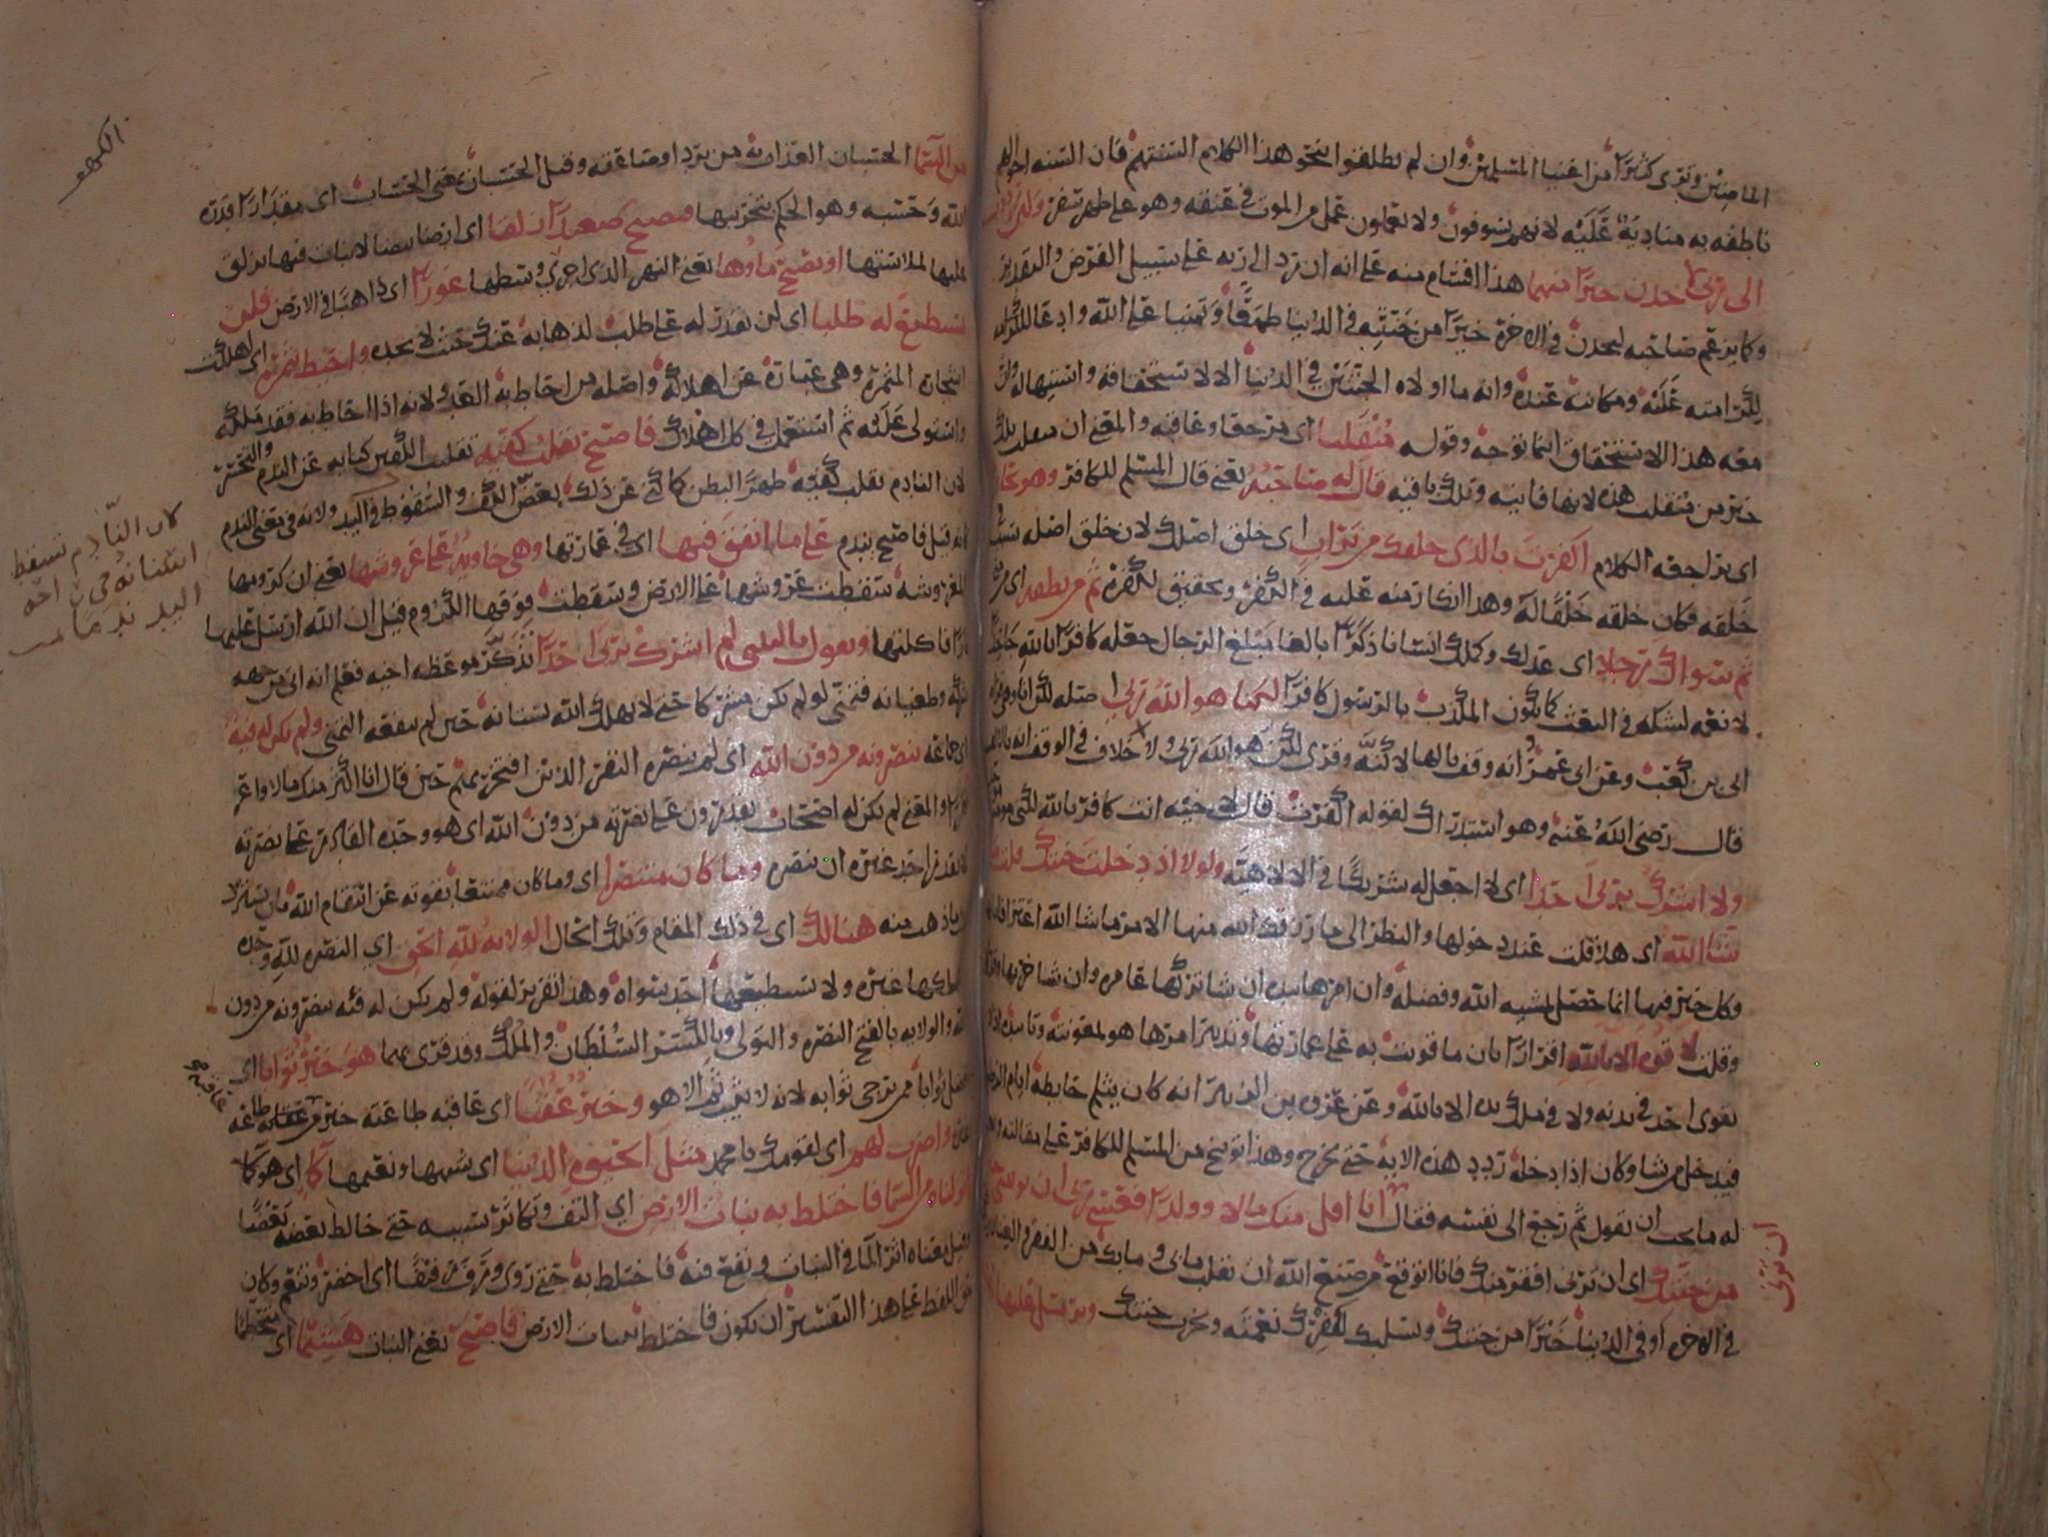 الماضين وترى كثيرا من اغنيا المسلمين وان لم يطلقوا بنحو هذا الكلام السنتهم فان السنه احوالهم
ناطقه به مناديه عليه لانهم يسوفون ولا يعملون عمل من الموت في عنقه وهو على ظهر سفر ولئن رددت
الى ربي لاجدن خيرا منهما هذا اقسام منه على انه ان رد الى ربه على سبيل الفرض والتقدير
وكما يزعم صاحبه ليجدن في الاخرة خيرا من جنته في الدنيا طمعا وتمنيا على الله وادعا للكرامه
لكرامته عليه ومكانته عنده وانه ما اولاه الجنتين في الدنيا الا لاستحقاقه واستيهاله وان
معه هذا الاستحقاق اينما توجه وقوله منقلبا اي مرجعا وعاقبه والمعنى ان منقلب تلك
خير من منقلب هذه لانها فانيه وتلك باقيه قال له صاحبه يعني قال المسلم للكافر وهو يحاوره
اي يراجعه الكلام اكفرت بالذي خلقك من تراب اي خلق اصلك لان خلق اصله سبب في
خلقه فكان خلقه خلقا له وهذا انكار منه عليه في الكفر وتحقيق لكفره ثم من نطفه اي مني
ثم سواك رجلا اي عدلك وكملك انسانا ذكرا بالغا مبلغ الرجال جعله كافرا بالله جاحدا
لانعمه لشكه في البعث كما يكون المكذب بالرسول كافرا لكنا هو الله ربي اصله لكن انا
ابي بن كعب وعن ابي عمرو انه وقف بالها لكنه وقرئ لكن هو الله ربي ولا خلاف في الوقف انه بالالف
قال رضي الله عنه وهو استدراك لقوله اكفرت قال لاخيه انت كافر بالله لكني مومن
ولا اشرك بربي احدا اي لا اجعل له شريكا في الالاهيه ولولا اذ دخلت جنتك قلت ما
شا الله اي هلا قلت عند دخولها والنظر الى ما رزقك الله منها الامر ما شا الله اعترافا بانها
وكل خير فيها انما حصل بمشيه الله وفضله وان امرها بيده ان شا تركها عامره وان شا خربها
وقلت لا قوه الا بالله اقرارا بان ما قويت به على عمارتها وتدبير امرها هو لمعونته وتاييده اذ لا
يقوى احد في بدنه ولا في ملك يده الا بالله وعن عروه بن الزبير انه كان يثلم حايطه ايام الرطب
فيدخل من شا وكان اذا دخله ردد هذه الايه حتى يخرج وهذا توبيخ من المسلم للكافر على مقالته
له ما يحب ان يقول ثم رجع الى نفسه فقال انا اقل منك مالا وولدا فعسى ربي ان يوتيني خيرا
من جنتك اي ان ترني افقر منك فانا اتوقع من صنع الله ان يقلب ما بي وما بك من الفقر والغنا
في الاخره او في الدنيا خيرا من جنتك ويسلبك لكفرك نعمته ويخرب جنتك ويرسل عليها
ان ترن
من السما الحسبان العذاب من برد او صاعقه وقيل الحسبان بمعنى الحساب اي مقدارا قدره
الله وحسبه وهو الحكم بتخريبها فتصبح صعيدا زلقا اي ارضا بيضا لا نبات فيها يزلق
عليها لملاستها او يصبح ماوها يعني النهر الذي اجري وسطها غورا اي ذاهبا في الارض فلن
تستطيع له طلبا اي لن تقدر له على طلب لذهابه عنك حيث لا تجده واحيط بثمره اي اهلكت
اشجاره المثمره وهي عبارة عن اهلاكه واصله من احاط به العدو لانه اذا احاط به فقد ملكه
واستولى عليه ثم استعمل في كل اهلاك فاصبح يقلب كفيه تقليب الكفين كنايه عن الندم والتحسر
لان النادم يقلب كفيه ظهرا لبطن كما كني عن ذلك بعض الكف والسقوط في اليد ولانه في معنى الندم
كانه قيل فاصبح يندم على ما انفق فيها اي في عمارتها وهي خاويه على عروشها يعني ان كرومها
المعروشه سقطت عروشها على الارض وسقطت فوقها الكروم قيل ان الله ارسل عليها
نارا فاكلتها ويقول يا ليتني لم اشرك بربي احدا تذكر موعظه اخيه فعلم انه اتي من جهه
شركه وطغيانه فتمنى لو لم يكن مشركا حتى لا يهلك الله بستانه حين لم ينفعه التمني ولم تكن له فئه
اي جماعه ينصرونه من دون الله اي لم ينصره النفر الذين افتخر بهم حين قال انا اكثر منك مالا واعز
نفرا والمعنى لم يكن له اصحاب يقدرون على نصرته من دون الله اي هو وحده القادر على نصرته
لا يقدر احد غيره ان ينصره وما كان منتصرا اي وما كان ممتنعا بقوته عن انتقام الله
هنالك اي في ذلك المقام وتلك الحال الولايه لله الحق اي النصره لله وحده
لا يملكها غيره ولا يستطيعها احد سواه وهذا تقرير لقوله ولم يكن له فئه ينصرونه من دون
الله والولايه بالفتح النصره والتولي وبالكسر السلطان والملك وقد قرئ بهما هو خير ثوابا اي
افضل ثوابا ممن يرجى ثوابه لانه لا يثيب ثم الا هو وخير عقبا اي عاقبه طاعته خير من عاقبه طاعه
غيره واضرب لهم اي لقومك يا محمد مثل الحيوه الدنيا اي شبهها ونعيمها كما اي هو كما
انزلناه من السما فاختلط به نبات الارض اي التف وتكاثر بسببه حتى خالط بعضه بعضا
وقيل معناه اثر الما في النبات ونفع فيه فاختلط به حتى روي ورف رفيفا اي اخضر وتنعم وكان
حق اللفظ على هذا التفسير ان يكون فاختلط بنبات الارض فاصبح يعني النبات هشيما اي متحطما
الكهف
كان النادم تسقط
اليد ندما
عاقبه